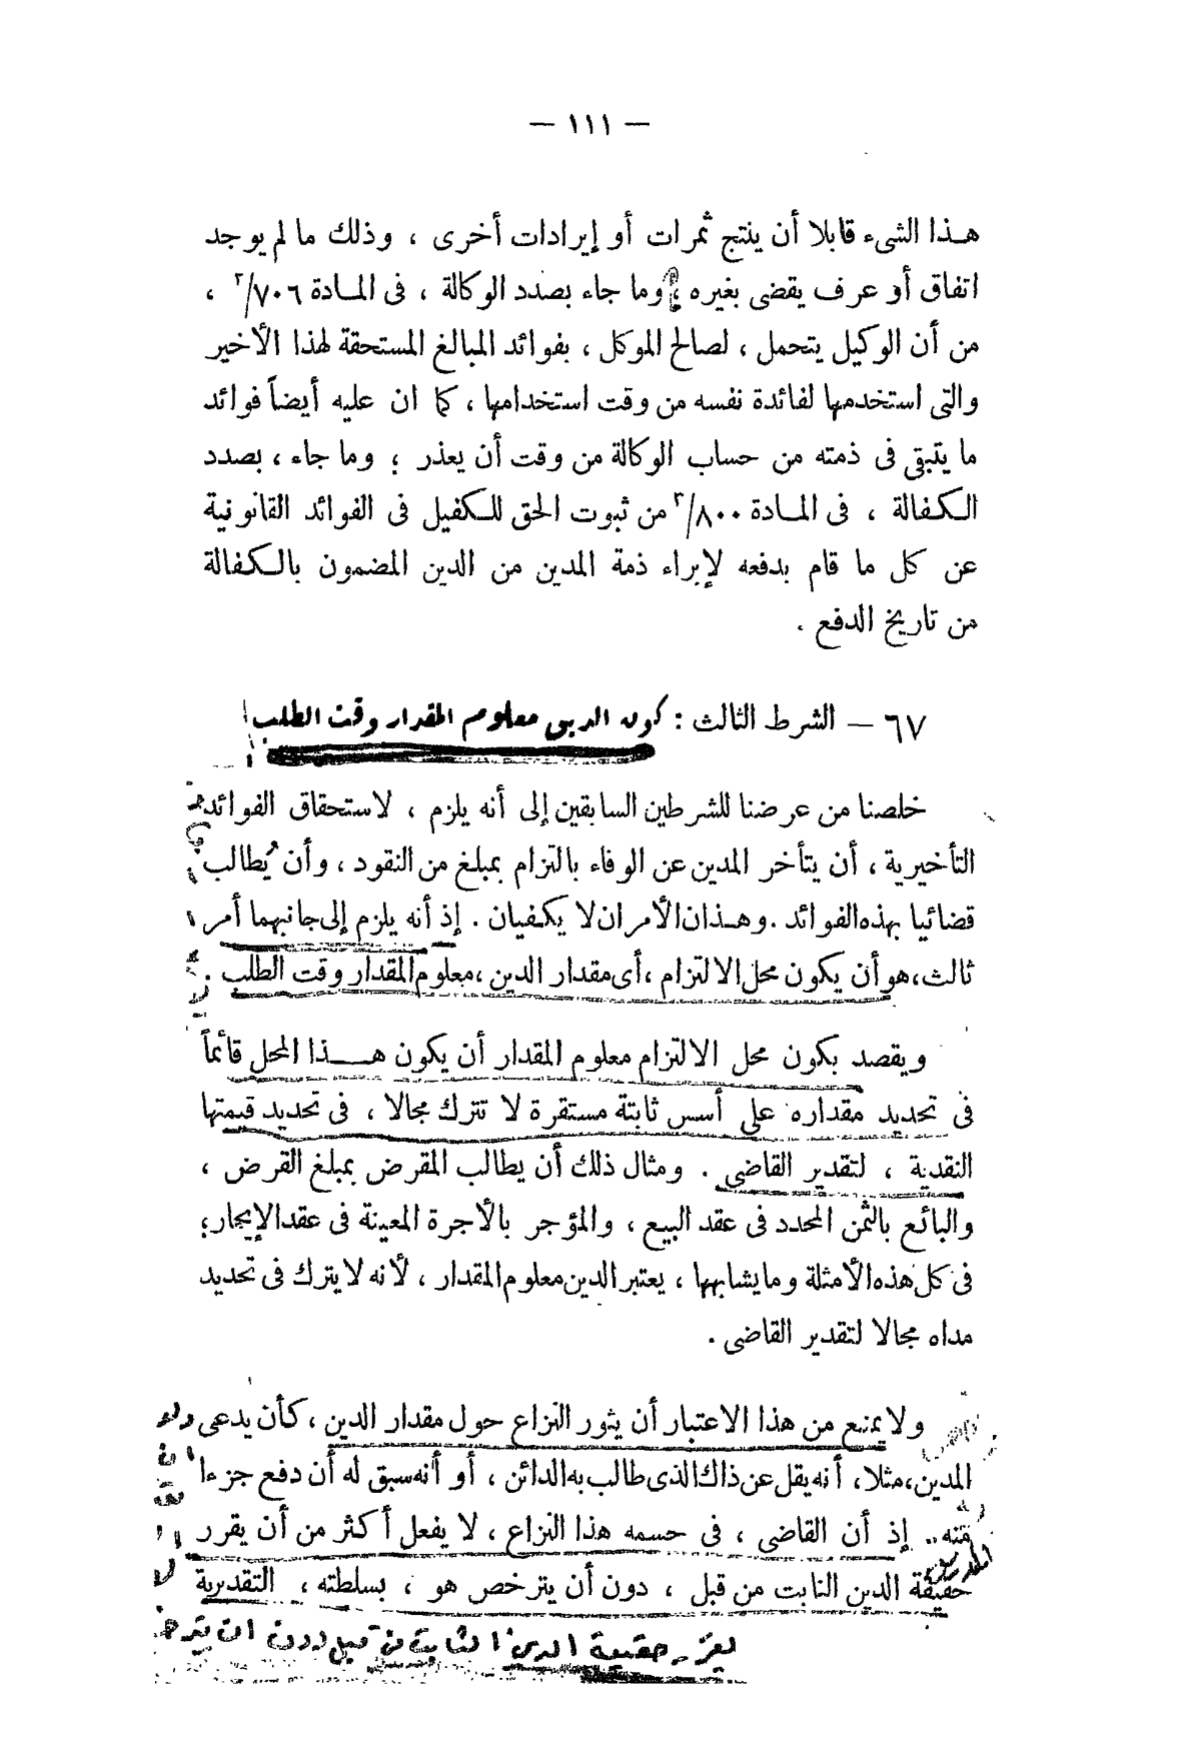 — ١١١ —
هـذا الشىء قابلا أن ينتج ثمرات أو إيرادات أخرى ، وذلك ما لم يوجد
اتفاق أو عرف يقضى بغيره ؛ وما جاء بصدد الوكالة ، فى المـادة ٧٠٦/٢ ،
من أن الوكيل يتحمل ، لصالح الموكل ، بفوائد المبالغ المستحقة لهذا الأخير
والتى استخدمها لفائدة نفسه من وقت استخدامها ، كما ان عليه أيضاً فوائد
ما يتبقى فى ذمته من حساب الوكالة من وقت أن يعذر ؛ وما جاء ، بصدد
الـكـفالة ، فى المـادة ٨٠٠/٢ من ثبوت الحق للـكـفيل فى الفوائد القانونية
عن كل ما قام بدفعه لإبراء ذمة المدين من الدين المضمون بالـكـفالة
من تاريخ الدفع .
٦٧ — الشرط الثالث : كون الدين معلوم المقدار وقت الطلب
خلصنا من عرضنا للشرطين السابقين إلى أنه يلزم ، لاستحقاق الفوائد
التأخيرية ، أن يتأخر المدين عن الوفاء بالتزام بمبلغ من النقود ، وأن يُطالب
قضائيا بهذه الفوائد . وهـذان الأمران لا يكـفيان . إذ أنه يلزم إلى جانبهما أمر
ثالث ، هو أن يكون محل الالتزام ، أى مقدار الدين ، معلوم المقدار وقت الطلب .
ويقصد بكون محل الالتزام معلوم المقدار أن يكون هـــذا المحل قائماً
فى تحديد مقداره على أسس ثابتة مستقرة لا تترك مجالا ، فى تحديد قيمتها
النقدية ، لتقدير القاضى . ومثال ذلك أن يطالب المقرض بمبلغ القرض ،
والبائع بالثمن المحدد فى عقد البيع ، والمؤجر بالأجرة المعينة فى عقد الإيجار ؛
فى كل هذه الأمثلة وما يشابهها ، يعتبر الدين معلوم المقدار ، لأنه لا يترك فى تحديد
مداه مجالا لتقدير القاضى .
ولا يمنع من هذا الاعتبار أن يثور النزاع حول مقدار الدين ، كأن يدعى
المدين ، مثلا ، أنه يقل عن ذاك الذى طالب به الدائن ، أو أنه سبق له أن دفع جزءا
منه .. إذ أن القاضى ، فى حسمه هذا النزاع ، لا يفعل أكثر من أن يقرر
حقيقة الدين الثابت من قبل ، دون أن يترخص هو ، بسلطته ، التقديرية
حقيقة الدين الثابت من قبل دون ان